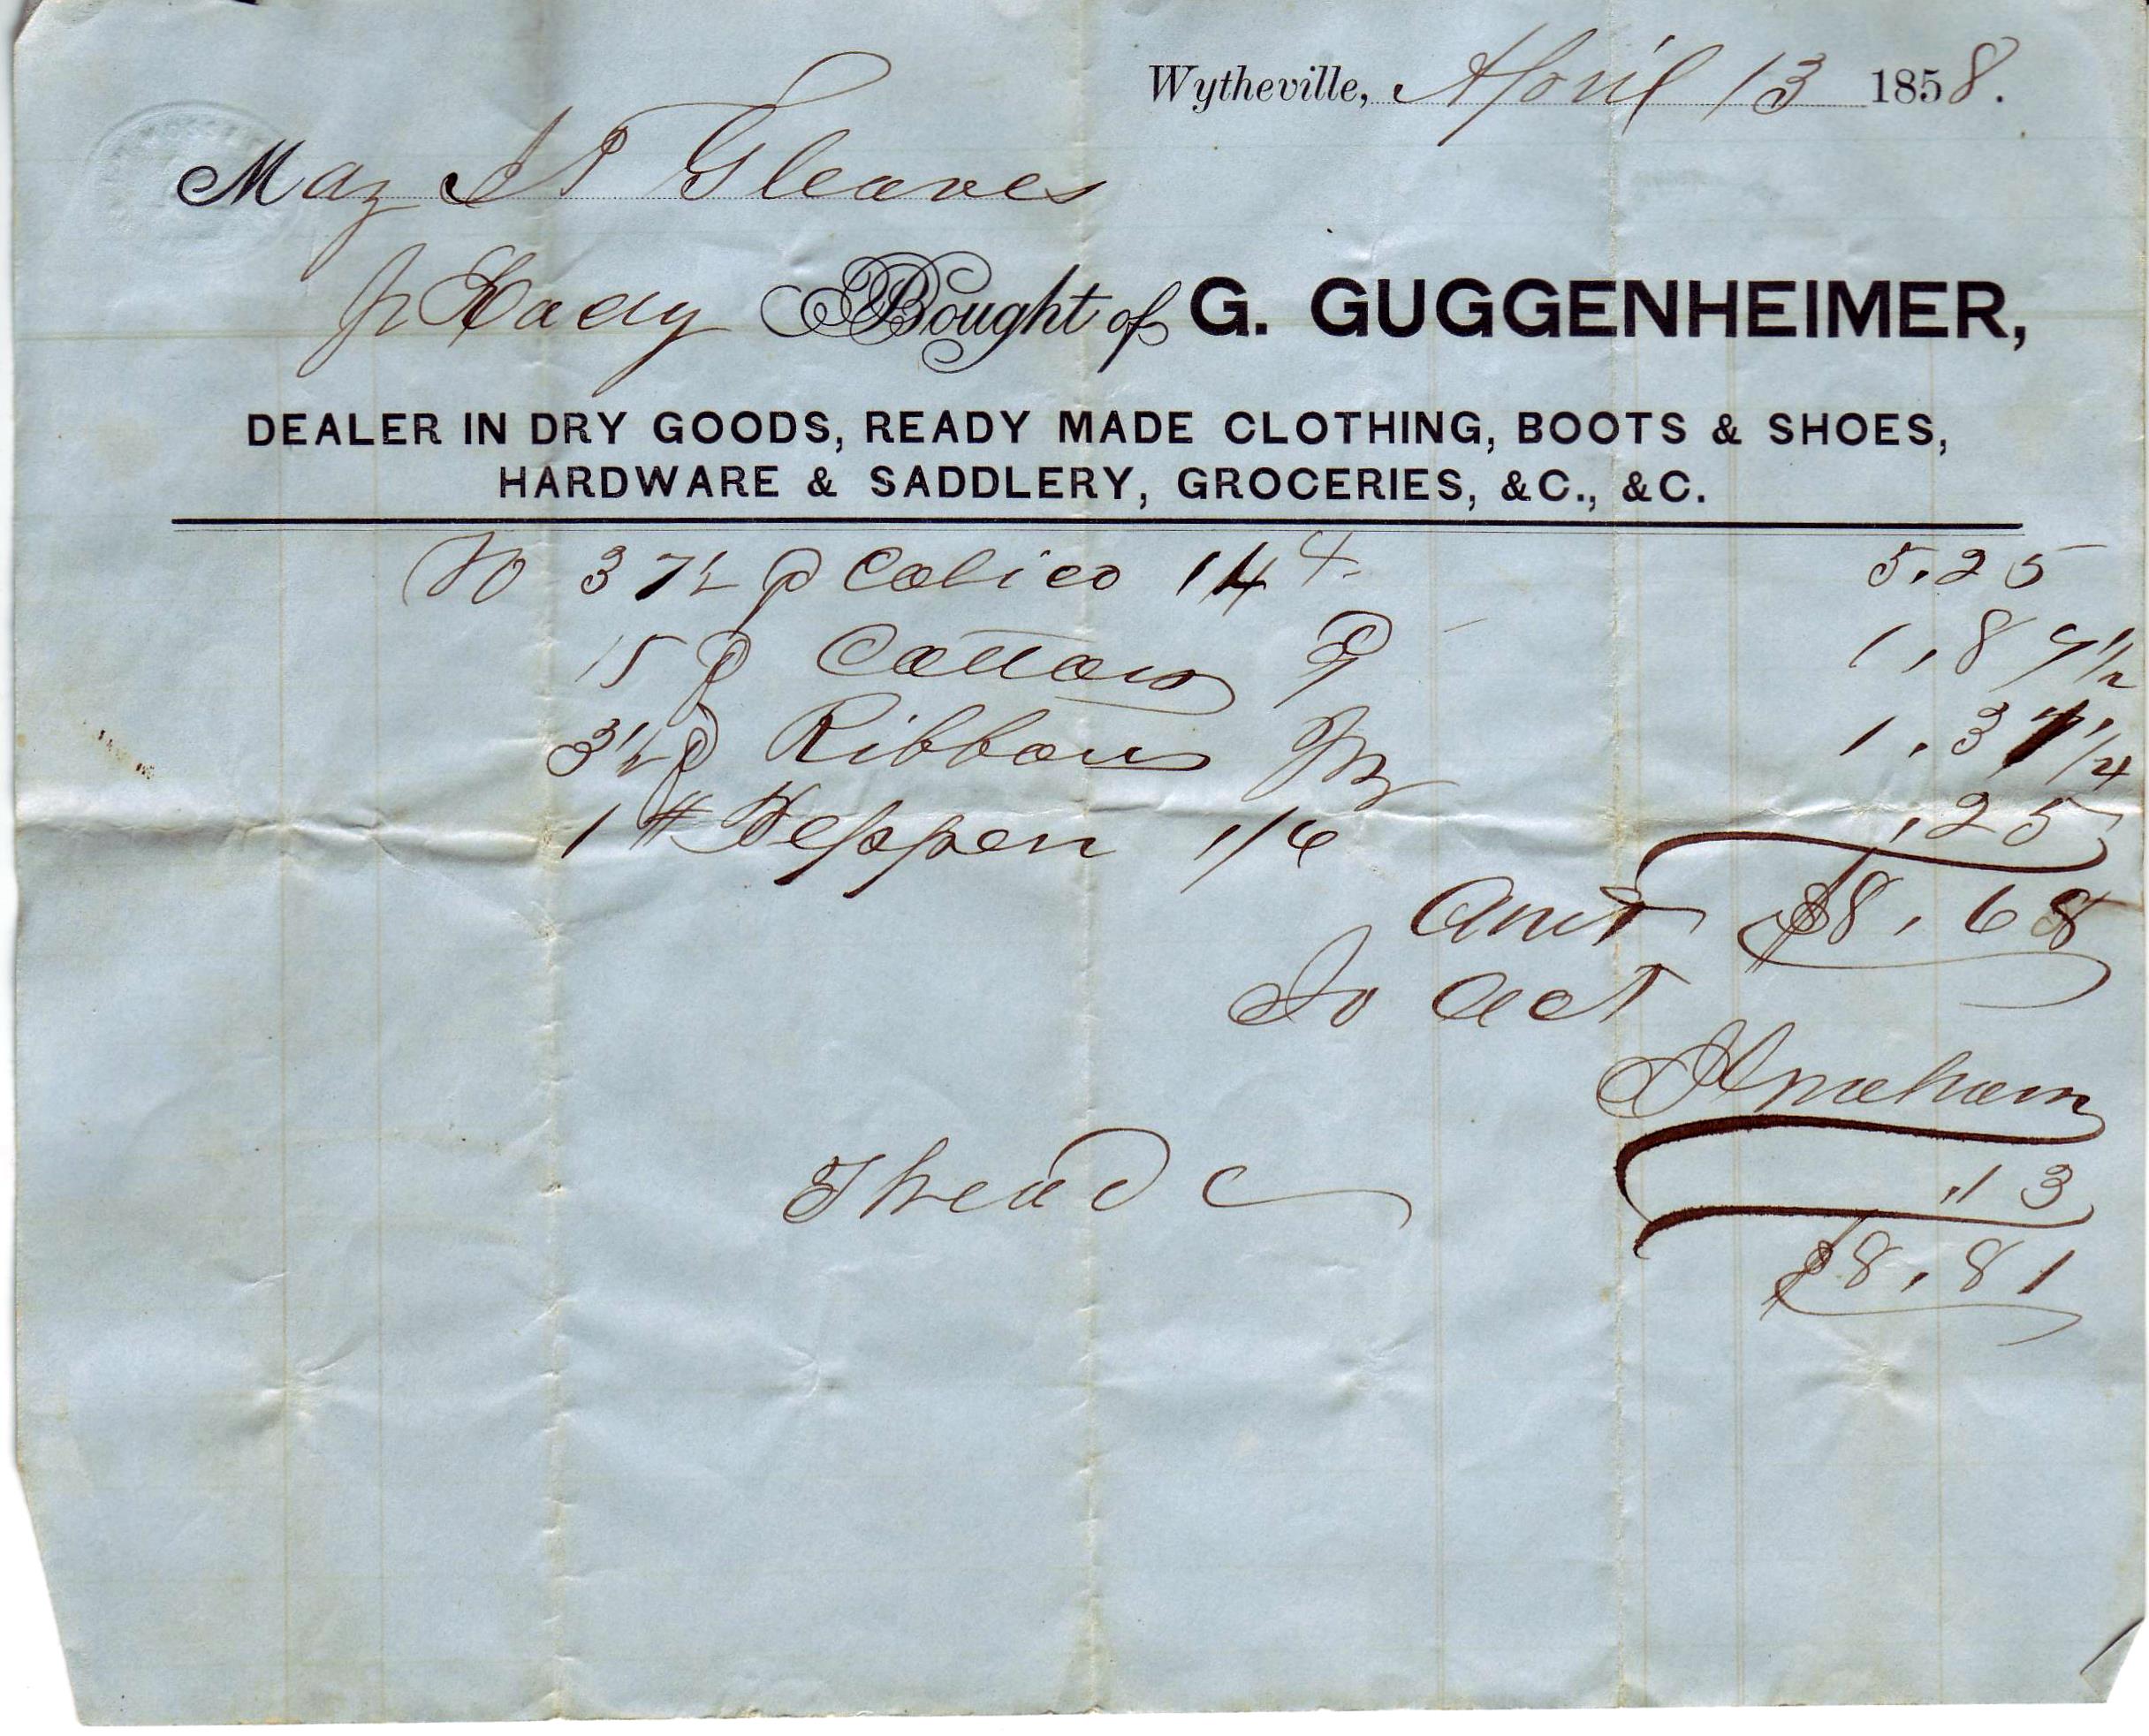 Wytheville, April 13 1858.
Maj Gleaves
pr Lady Bought of G. GUGGENHEIMER,
DEALER IN DRY GOODS, READY MADE CLOTHING, BOOTS & SHOES,
HARDWARE & SADDLERY, GROCERIES, &C., &C.
To 37½ Calico 14 5.25
15 Cotton 1,87½
3½ Ribbon 1.31¼
1 # Peppen 1/6 ,25
Amt $8,68
To Act
Thread ,13
$8,81